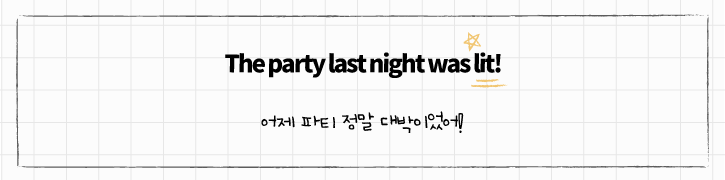 The party last night was lit!
어제 파티 정말 대박이었어!